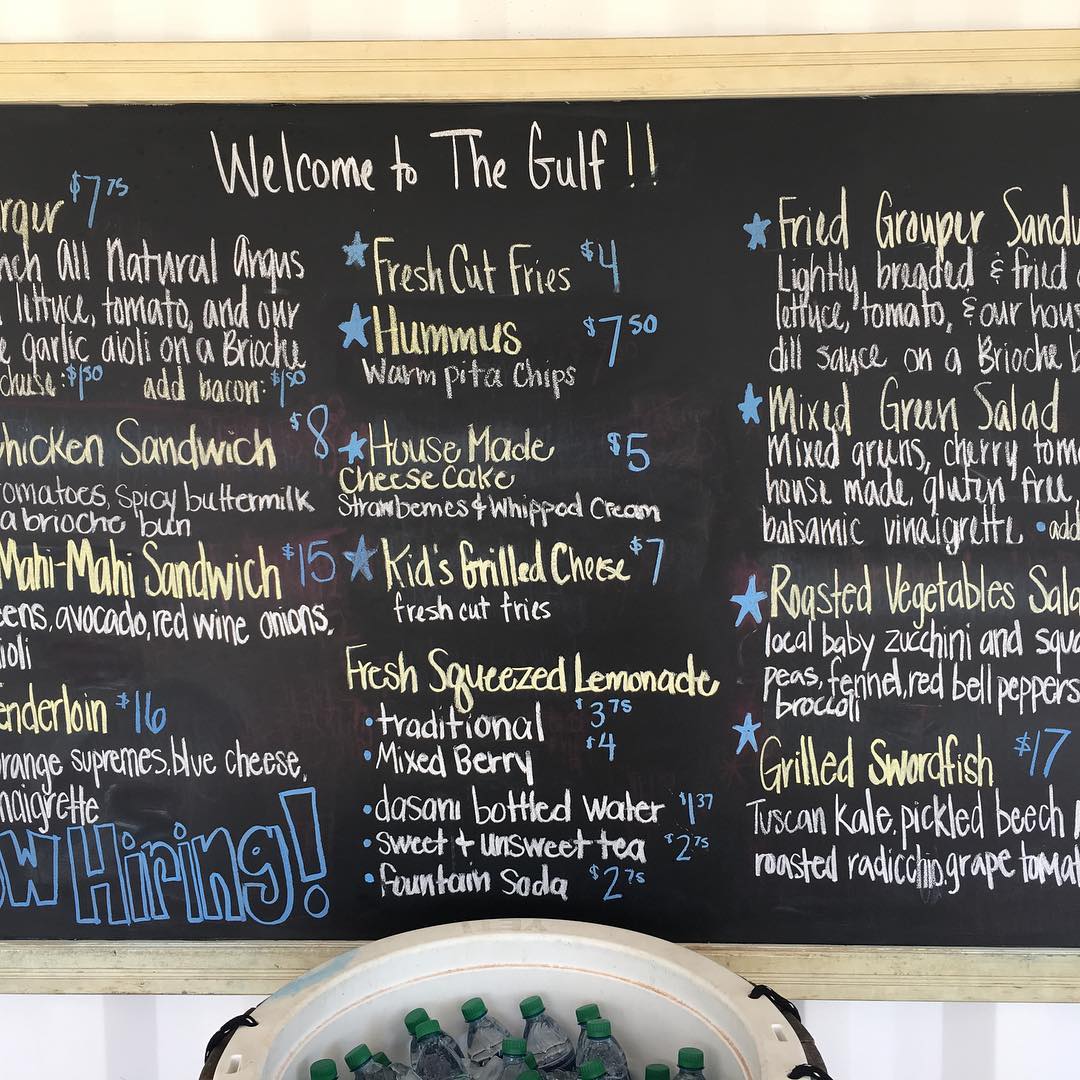 Welcome to The Gulf!!
$7.75
all Natural angus
lettuce, tomato, and our
garlic aioli on a Brioche
$1.50 add bacon: $1.50
Chicken Sandwich $8
tomatoes, spicy buttermilk
a brioche bun
Mahi-Mahi Sandwich $15
avocado, red wine onions,
$16
orange supremes, blue cheese,
Hiring!
Fresh Cut Fries $4
Hummus $7.50
Warm pita Chips
House Made $5
Cheese Cake
Strawberries & Whipped Cream
Kid's Grilled Cheese $7
fresh cut fries
Fresh Squeezed Lemonade
• traditional $3.75
• Mixed Berry $4
• dasani bottled water $1.37
• sweet + unsweet tea $2.75
• fountain Soda $2.75
Fried Grouper
Lightly breaded & fried
lettuce, tomato, & our
dill sauce on a Brioche
Mixed Green Salad
Mixed greens, cherry
house made, gluten free,
balsamic vinaigrette • add
Roasted Vegetables
local baby zucchini and
peas, fennel, red bell peppers
broccoli
Grilled Swordfish $17
Tuscan Kale, pickled beech
roasted radicchio, grape